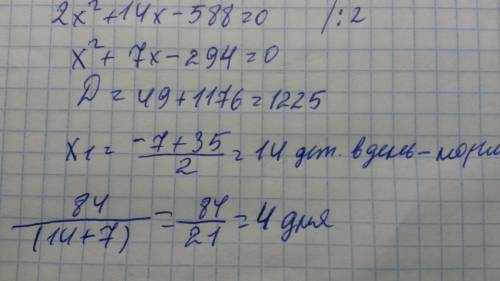 2x²+14x-588=0 /:2
x²+7x-294=0
Д=49+1176=1225
x₁= (-7+35)/2 = 14 дет. в день-норм
84/(14+7) = 84/21 = 4 дня